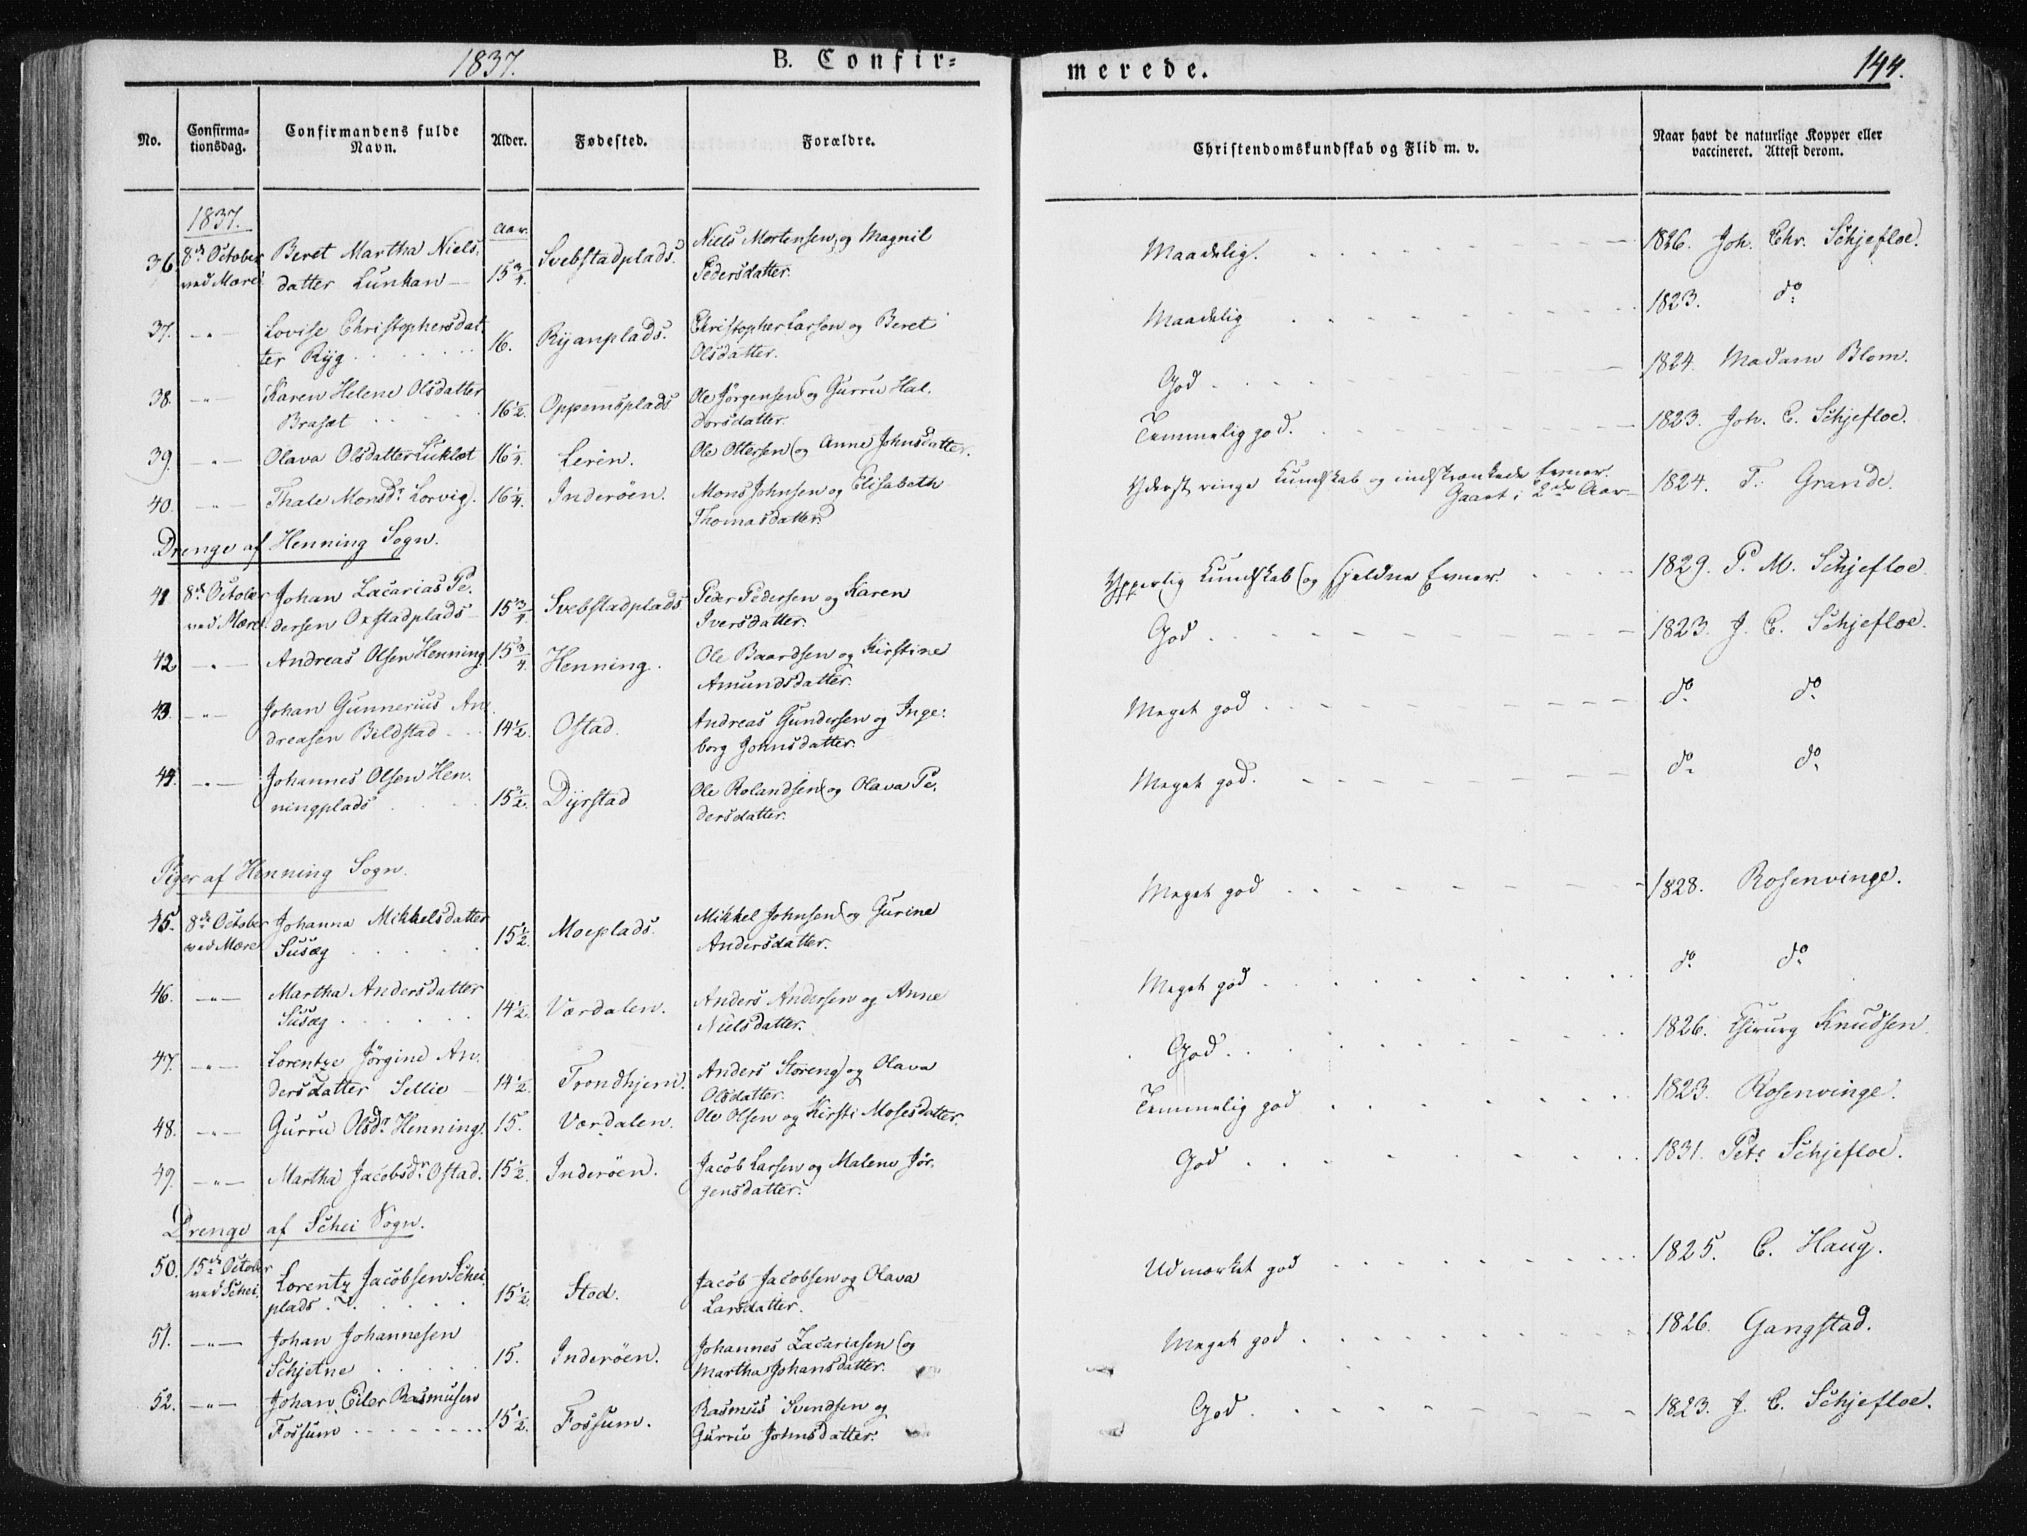 1837. B. Confir=
merede. 144.
No. Confirma-
tionsdag. Confirmandens fulde
Navn. Alder. Fødested. Forældre. Christendomskundskab og Flid m. v. Naar havt de naturlige Kopper eller
vaccineret. Attest derom.
1837. Aar.
36. 8de October Beret Martha Niels- 15¾. Svebstadplads. Niels Mortensen og Magnil Maadelig. 1826. Joh. Chr. Schjefloe.
ved Mære datter Lunkan Pedersdatter.
37. -"- Lovise Christophersdat- 16. Ryanplads. Christopher Larsen og Beret Maadelig 1823. do
ter Ryg Olsdatter.
38. -"- Karen Helene Olsdatter 16½. Oppemsplads Ole Jørgensen og Gurru Hal- God 1824. Madam Blom.
Brasæt dorsdatter.
39. -"- Olava Olsdatter Luklæt 16¼. Lerin. Ole Ottersen og Anne Johnsdatter. Temmelig god. 1823. Joh. C. Schjefloe.
40. -"- Thale Monsdr Lorvig. 16¼. Inderöen. Mons Johnsen og Elisabeth Yderst ringe Kundskab og indskrænkede Evner. 1824. T. Grande.
Thomasdatter. Gaaet i 2de Aar
Drenge af Henning Sogn.
41 8de October Johan Zacarias Pe- 15¾ Svebstadplads Peder Pedersen og Karen Ypperlig Kundskab og sjeldne Evner. 1829. P. M. Schjefloe
ved Mære dersen Oxstadplads Iversdatter.
42 -"- Andreas Olsen Henning 15¾. Henning. Ole Baardsen og Kirstine God 1823. J. C. Schjefloe.
Amundsdatter.
43. -"- Johan Gunnerius An- 14½. Ostad. Andreas Gundersen og Inge- Meget god do do
dreasen Bildstad borg Johnsdatter.
44. -"- Johannes Olsen Hen- 15½. Dyrstad Ole Rolandsen og Olava Pe- Meget god. do do
ningplads dersdatter.
Piger af Henning Sogn.
45. 8de October Johanna Mikkelsdatter 15½. Moeplads. Mikkel Johnsen og Gurine Meget god 1828. Rosenvinge.
ved Mære Susæg Andersdatter.
46. -"- Martha Andersdatter 14½. Værdalen. Anders Andersen og Anne Meget god do do
Susæg Nielsdatter.
47. -"- Lorentze Jørgine An- 14½. Trondhjem. Anders Storeng og Olava God 1826. Chirurg Knudsen
dersdatter Sellie Olsdatter.
48. -"- Gurru Olsdr Henning. 15. Værdalen. Ole Olsen og Kirsti Mosesdatter. Temmelig god 1823. Rosenvinge.
49. -"- Martha Jacobsdr Ostad. 15½. Inderöen. Jacob Larsen og Malene Jør- God 1831. Petr Schjefloe.
gensdatter.
Drenge af Schei Sogn.
50. 15de October Lorentz Jacobsen Schei 15½. Stod. Jacob Jacobsen og Olava Udmærket god 1825. C. Haug.
ved Schei. plads Larsdatter.
51. -"- Johan Johannesen 15. Inderöen. Johannes Zacariasen og Meget god 1826. Gangstad.
Schjetne Martha Johansdatter.
52. -"- Johan Eiler Rasmusen 15½. Fossum. Rasmus Svendsen og God 1823. J. C. Schjefloe.
Fossum Gurru Johnsdatter.